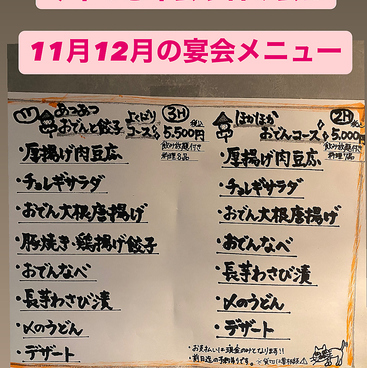 11月12月の宴会メニュー
あつあつ
おでんと餃子
よくばり
コース
3H
税込
5,500円
飲み放題付き
料理8品
・厚揚げ肉豆広
・チョレギサラダ
・おでん大根唐揚げ
・豚焼き・鶏揚げ餃子
・おでんなべ
・長芋わさび漬
・〆のうどん
・デザート
ほかほか
おでんコース
2H
税込
5,000円
飲み放題付き
料理7品
・厚揚げ肉豆広
・チョレギサラダ
・おでん大根唐揚げ
・おでんなべ
・長芋わさび漬
・〆のうどん
・デザート
・お支払いは現金のみとなります!!